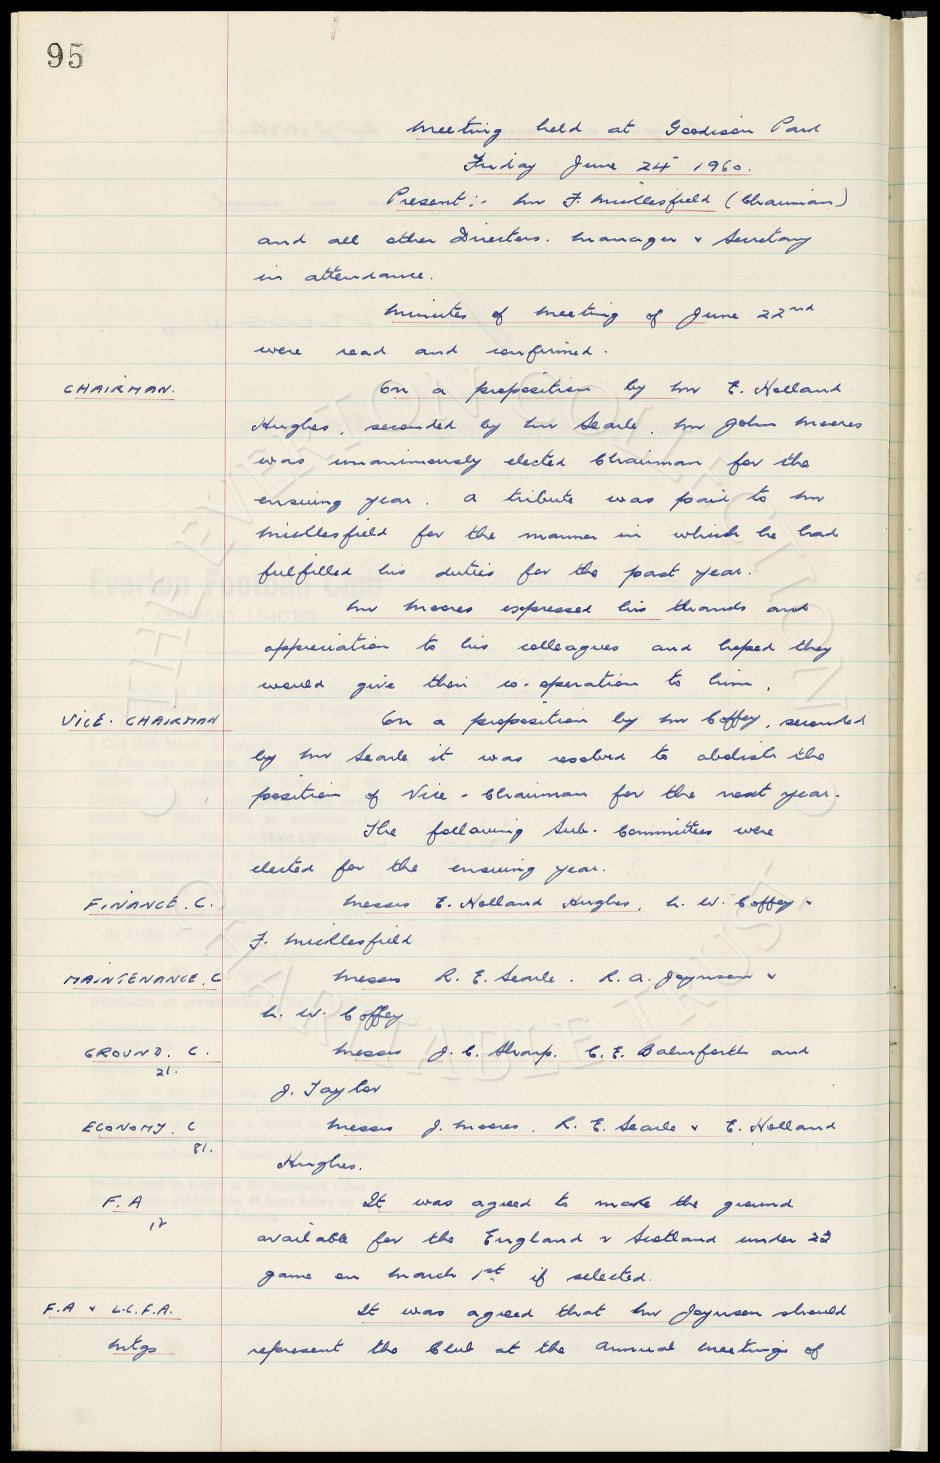 95
Meeting held at Goodison Park
Friday June 24th 1960.
Present:- Mr F. Micklesfield (Chairman)
and all other Directors. Manager & Secretary
in attendance.
Minutes of meeting of June 22nd
were read and confirmed.
CHAIRMAN. On a proposition by Mr E. Holland
Hughes, seconded by Mr Searle, Mr John Moores
was unanimously elected Chairman for the
ensuing year. A tribute was paid to Mr
Micklesfield for the manner in which he had
fulfilled his duties for the past year.
Mr Moores expressed his thanks and
appreciation to his colleagues and hoped they
would give their co-operation to him.
VICE-CHAIRMAN On a proposition by Mr Coffey, seconded
by Mr Searle it was resolved to abolish the
position of Vice-Chairman for the next year.
The following Sub-Committees were
elected for the ensuing year.
FINANCE. C. Messrs E. Holland Hughes, L. W. Coffey &
F. Micklesfield
MAINTENANCE. C Messrs R. E. Searle. R. A. Joynson &
L. W. Coffey
GROUND. C. Messrs J. C. Sharp. C. E. Balmforth and
21.
J. Taylor
ECONOMY. C Messrs J. Moores. R. E. Searle & E. Holland
81.
Hughes.
F.A It was agreed to make the ground
12
available for the England v Scotland under 23
game on March 1st if selected.
F.A & L.C.F.A. It was agreed that Mr Joynson should
Mtgs represent the Club at the Annual Meetings of
THE EVERTON COLLECTION
CHARITABLE TRUST
Everton Football Club